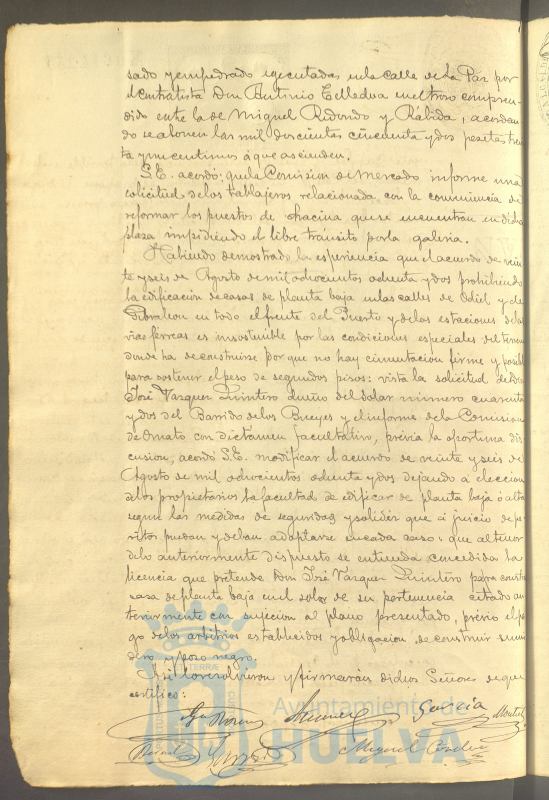 sado y empedrado ejecutadas en la calle de la Paz por
el contratista Don Antonio en el trozo compren-
dido entre la de Miguel Redondo y Rábida, acordan-
do se abonen las mil doscientas cincuenta y dos pesetas trein-
ta y un centimos á que ascienden.
S.E. acordó; que la Comision de Mercado informe una
solicitud de los tablajeros relacionada con la conveniencia de
reformar los puestos de chacina que se encuentran en dicha
plaza impidiendo el libre tránsito por la galeria.
Habiendo demostrado la esperiencia que el acuerdo de vein-
te y seis de Agosto de mil ochocientos ochenta y dos prohibiendo
la edificacion de casas de planta baja en las calles de Odiel y de
Gibraleon en todo el frente del Puerto y de las estaciones de las
vias férreas es insostenible por las condiciones especiales del terreno
donde ha de construirse por que no hay cimentacion firme y posible
para sostener el peso de segundos pisos: vista la solicitud de Don
José Vazquez Quintero dueño del solar número cuarenta
y dos del Barrido de los Bueyes y el informe de la Comision
de Ornato con dictamen facultativo, prévia la oportuna dis-
cusion, acordó S.E. modificar el acuerdo de veinte y seis de
Agosto de mil ochocientos ochenta y dos dejando a eleccion
de los propietarios la facultad de edificar de planta baja ó alta
segun las medidas de seguridad y solidez que á juicio de pe-
ritos puedan y deban adoptarse en cada caso: que al tenor
de lo anteriormente dispuesto se entienda concedida la
licencia que pretende Don José Vazquez Quintero para constr
casa de planta baja en el solar de su pertenencia citado an-
teriormente con sujecion al plano presentado, prévio el pa-
go de los arbitrios establecidos y obligacion de construir sumi-
dero y pozo negro.
Asi lo resolvieron y firmarán dichos Señores de que
certifico:
Garcia
Miguel
Ayuntamiento de
HUELVA